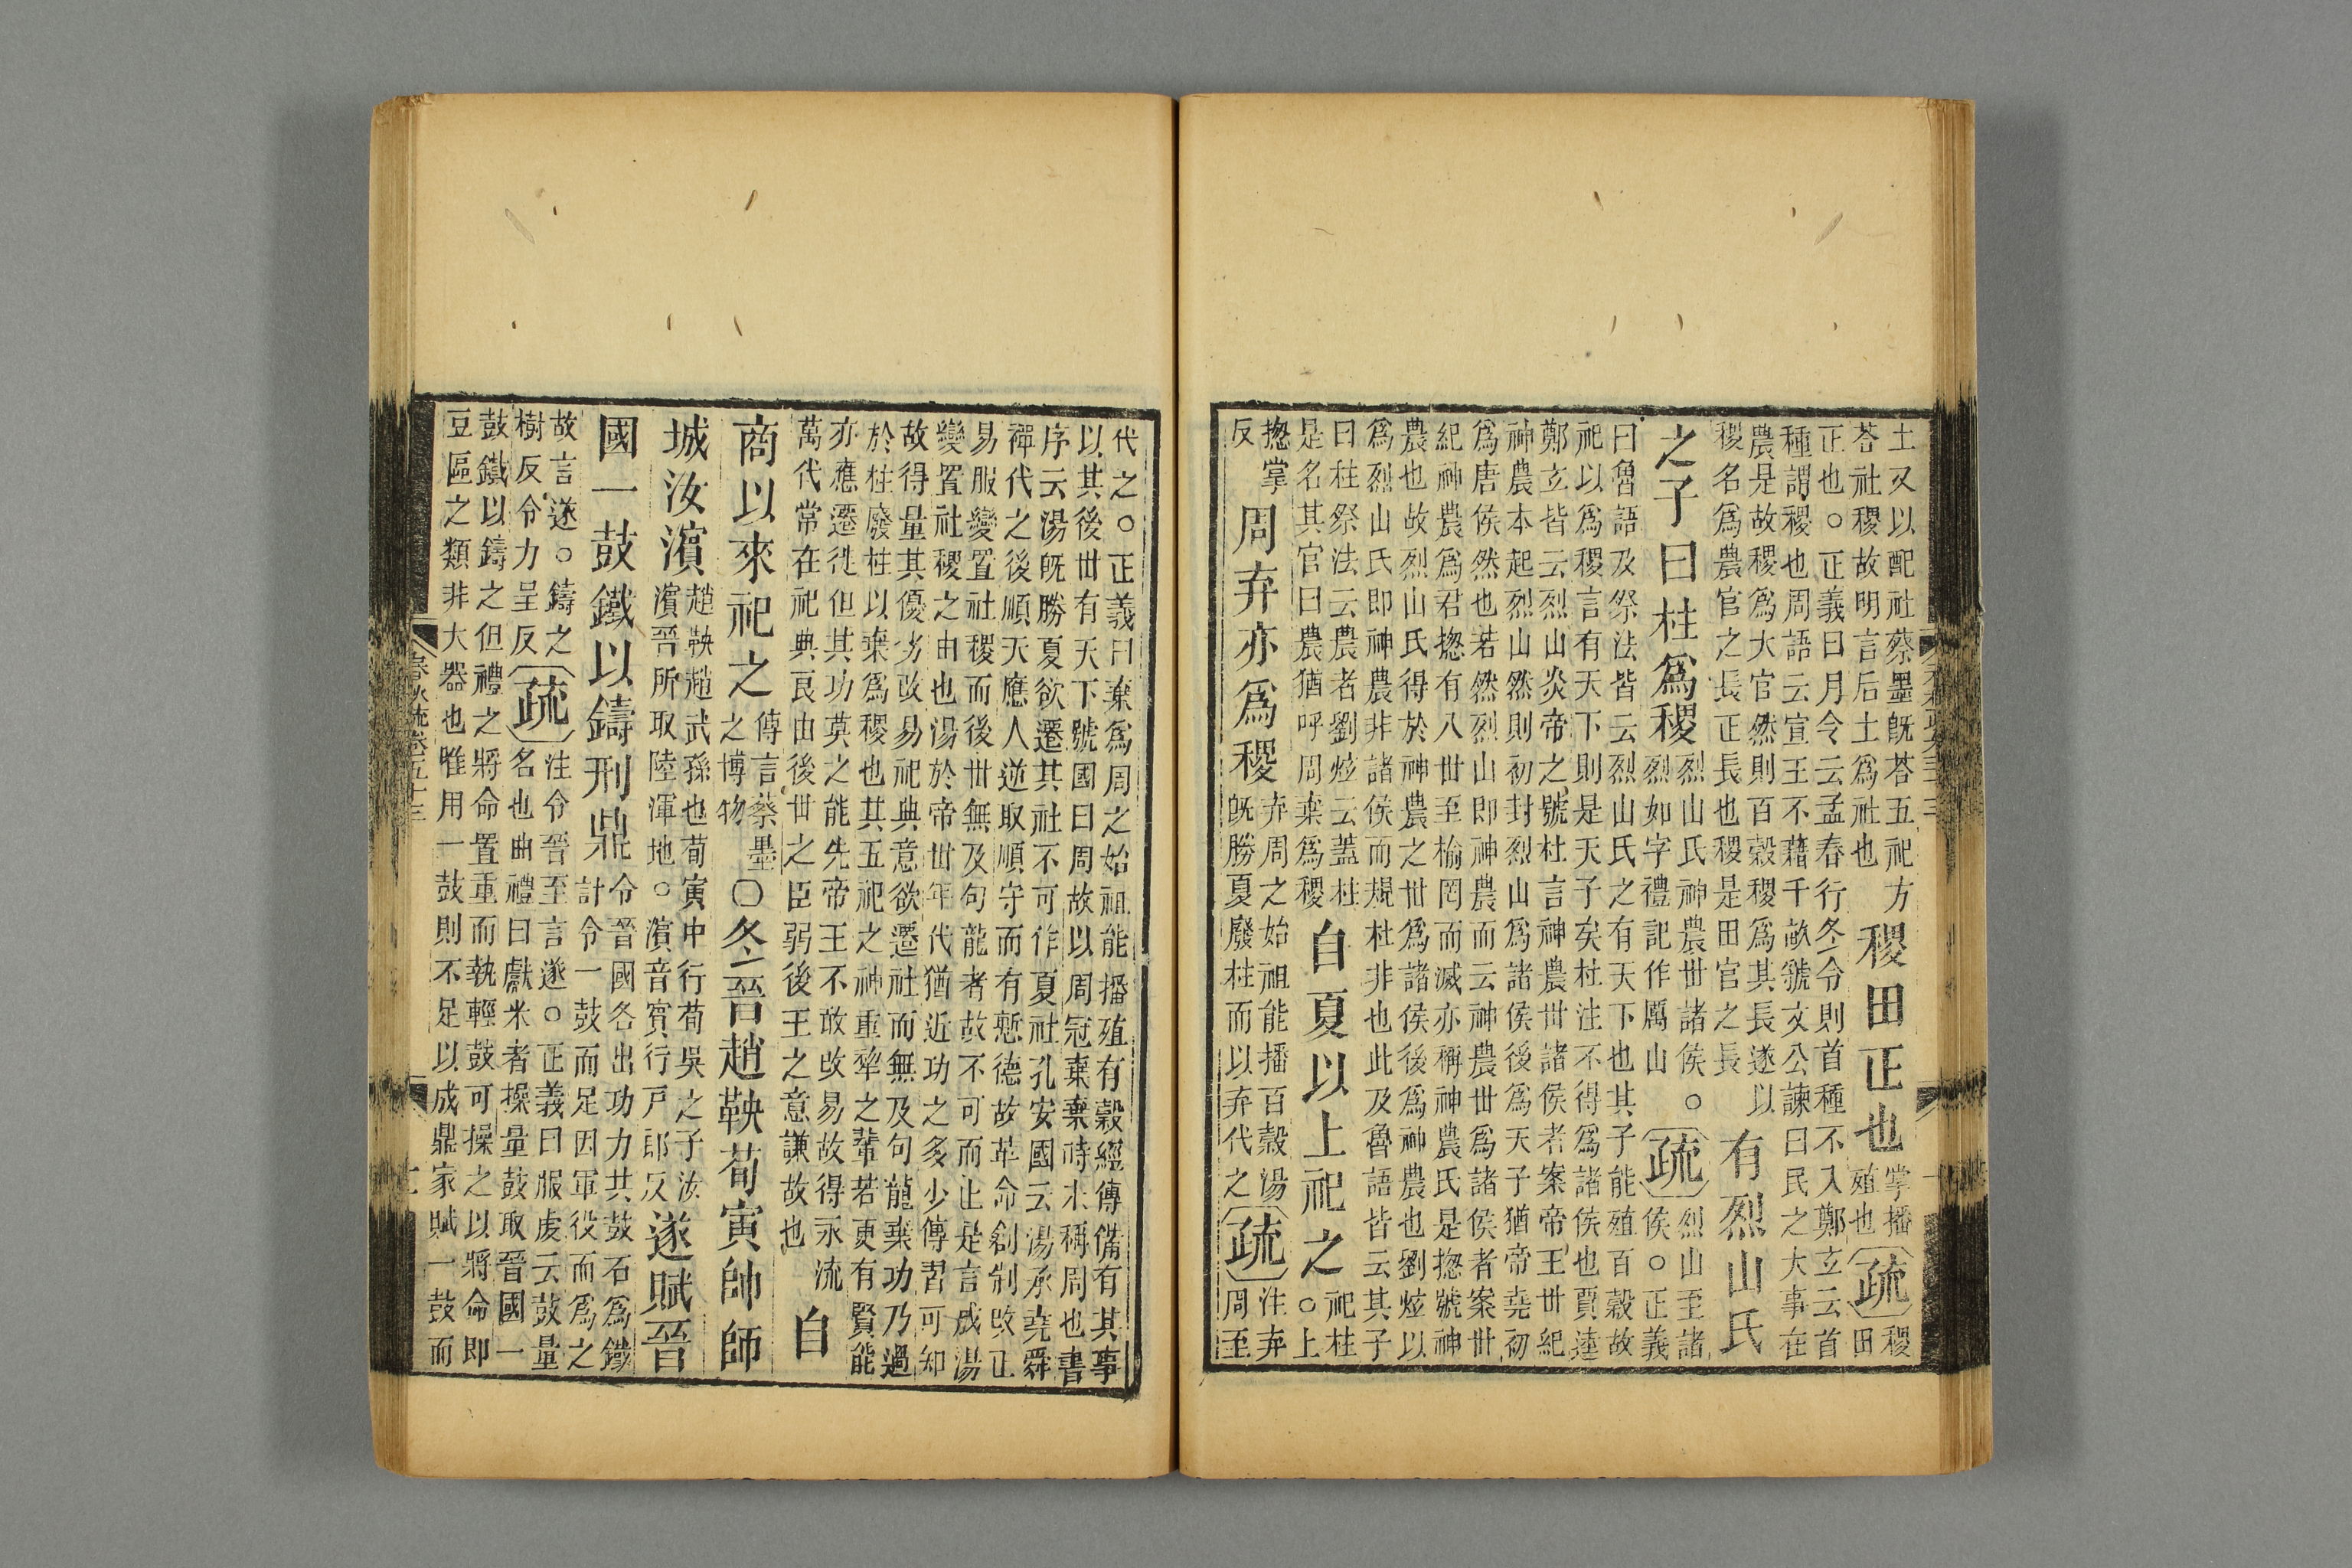 土又以配社蔡墨旣荅五祀方
荅社稷故明言后土爲社也
稷田正也
掌播
殖也
疏
稷
田
正也○正義曰月令云孟春行冬令則首種不入鄭玄云首
種謂稷也周語云宣王不藉千畝虢文公諫曰民之大事在
農是故稷爲大官然則百穀稷爲其長遂以
稷名爲農官之長正長也稷是田官之長
有烈山氏
之子曰柱爲稷
烈山氏神農世諸侯○
烈如字禮記作厲山
疏
烈山至諸
侯○正義
曰魯語及祭法皆云烈山氏之有天下也其子能殖百穀故
祀以爲稷言有天下則是天子矣杜注不得爲諸侯也賈逵
鄭玄皆云烈山炎帝之號杜言神農世諸侯者案帝王世紀
神農本起烈山然則初封烈山爲諸侯後爲天子猶帝堯初
爲唐侯然也若然烈山即神農而云神農世爲諸侯者案世
紀神農爲君揔有八世至榆罔而滅亦稱神農氏是揔號神
農也故烈山氏得於神農之世爲諸侯後爲神農也劉炫以
爲烈山氏即神農非諸侯而規杜非也此及魯語皆云其子
曰柱祭法云農者劉炫云蓋柱
是名其官曰農猶呼周棄爲稷
自夏以上祀之
祀柱
○上
揔掌
反
周弃亦爲稷
弃周之始祖能播百穀湯
旣勝夏廢柱而以弃代之
疏
注弃
周至
代之○正義曰棄爲周之始祖能播殖有穀經傳備有其事
以其後世有天下號國曰周故以周冠棄棄時未稱周也書
序云湯旣勝夏欲遷其社不可作夏社孔安國云湯承堯舜
禪代之後順天應人逆取順守而有慙德故革命創制改正
易服變置社稷而後世無及句龍者故不可而止是言成湯
變置社稷之由也湯於帝世年代猶近功之多少傳習可知
故得量其優劣改易祀典意欲遷社而無及句龍棄功乃過
於柱廢柱以棄爲稷也其五祀之神重犂之輩若更有賢能
亦應遷徙但其功莫之能先帝王不敢改易故得永流
萬代常在祀典良由後世之臣弱後王之意謙故也
自
商以來祀之
傳言蔡墨
之博物
○冬晉趙鞅荀寅帥師
城汝濱
趙鞅趙武孫也荀寅中行荀吳之子汝
濱晉所取陸渾地○濱音賔行戸郎反
遂賦晉
國一鼓鐵以鑄刑鼎
令晉國各出功力共鼓石爲鐵
計令一鼓而足因軍役而爲之
故言遂○鑄之
樹反令力呈反
疏
注令晉至言遂○正義曰服虔云鼓量
名也曲禮曰獻米者操量鼓取晉國一
鼓鐵以鑄之但禮之將命置重而執輕鼓可操之以將命即
豆區之類非大器也唯用一鼓則不足以成鼎家賦一鼓而
春秋疏卷五十三